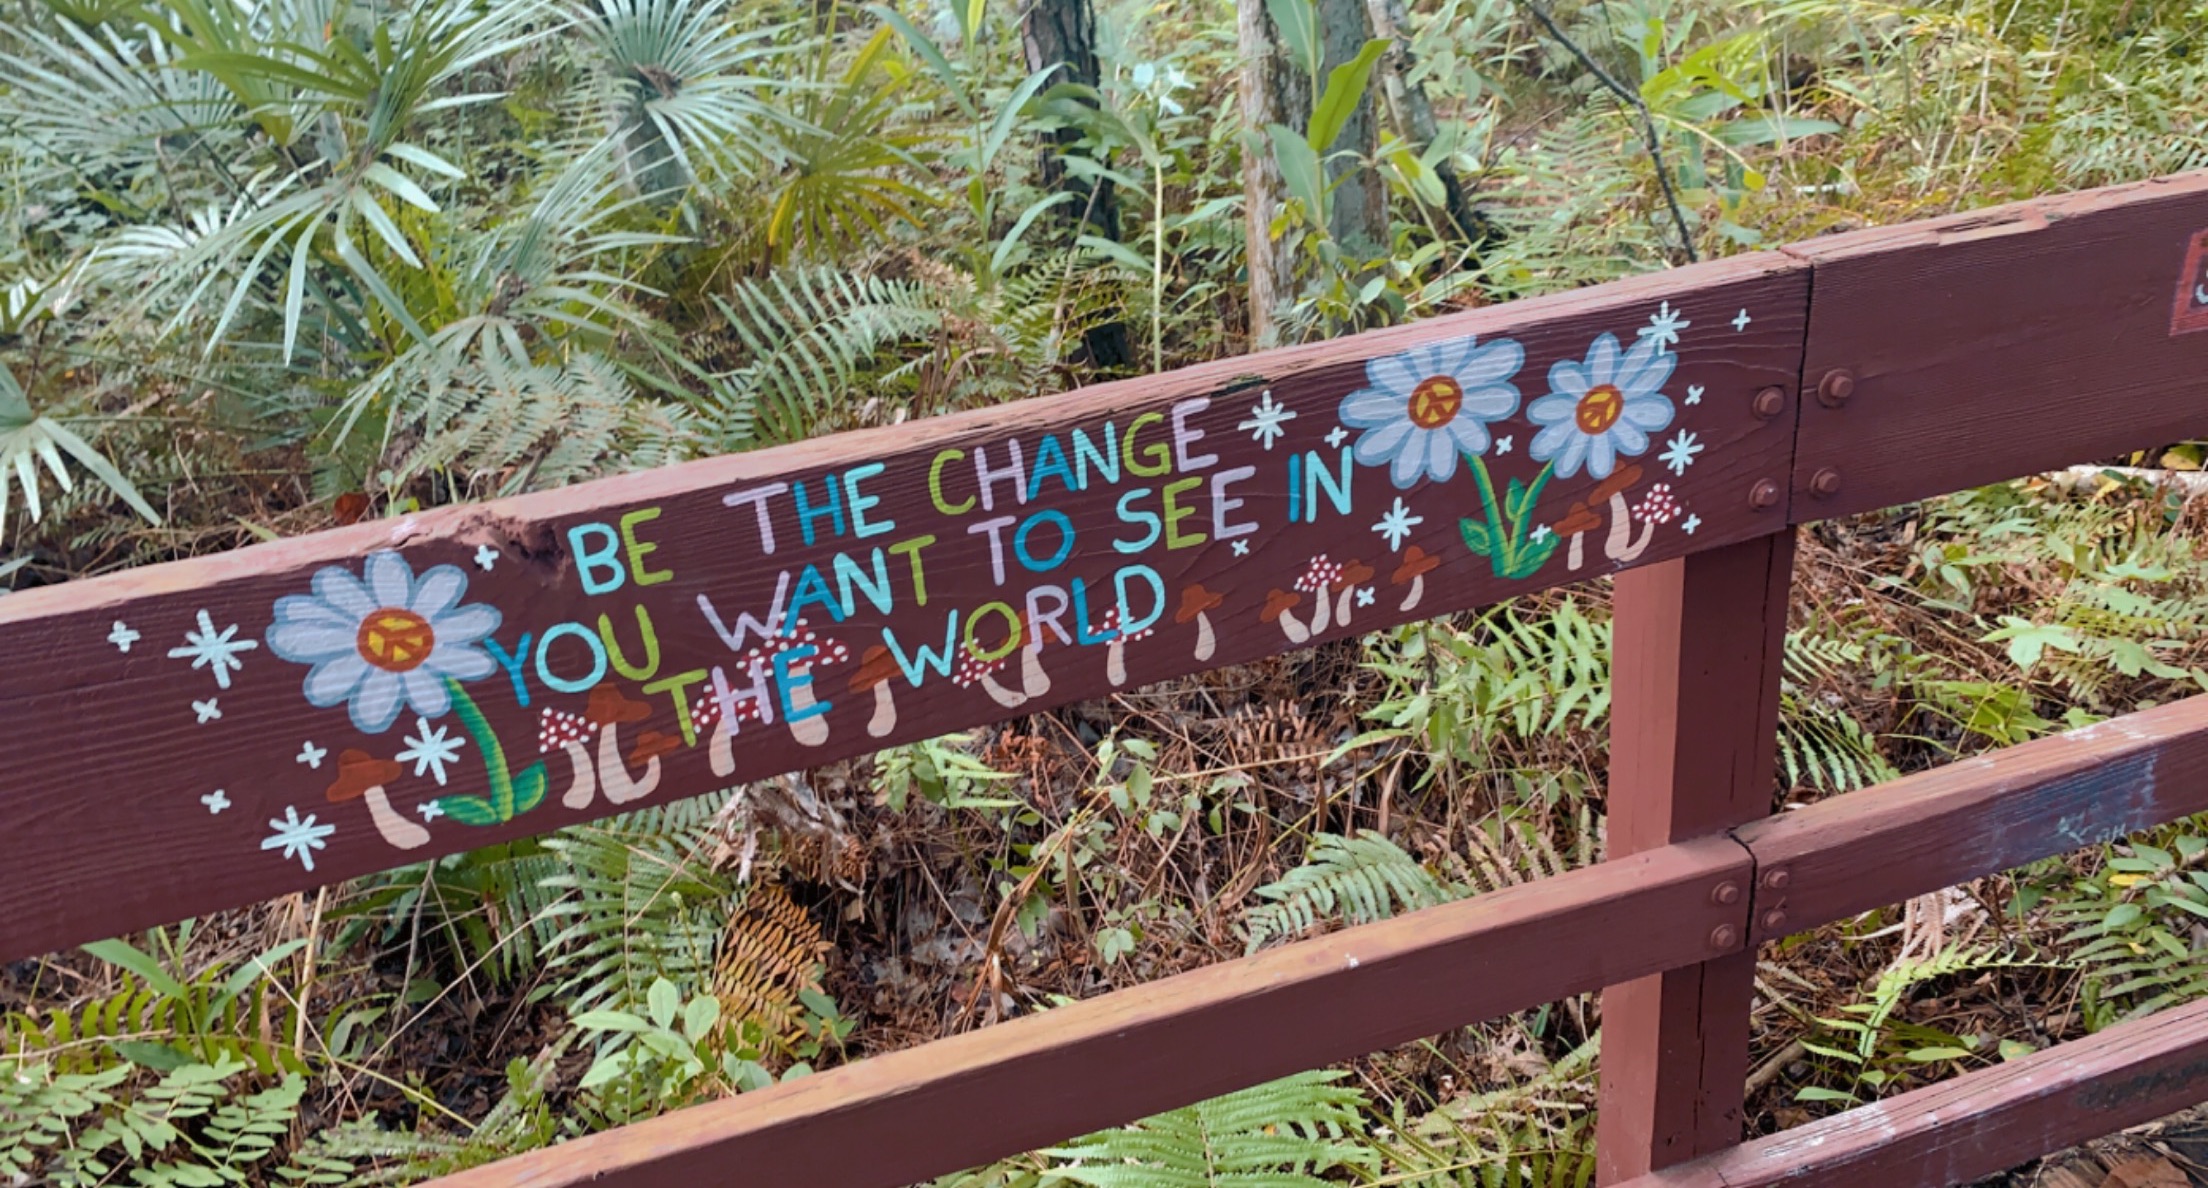 BE THE CHANGE
YOU WANT TO SEE IN
THE WORLD